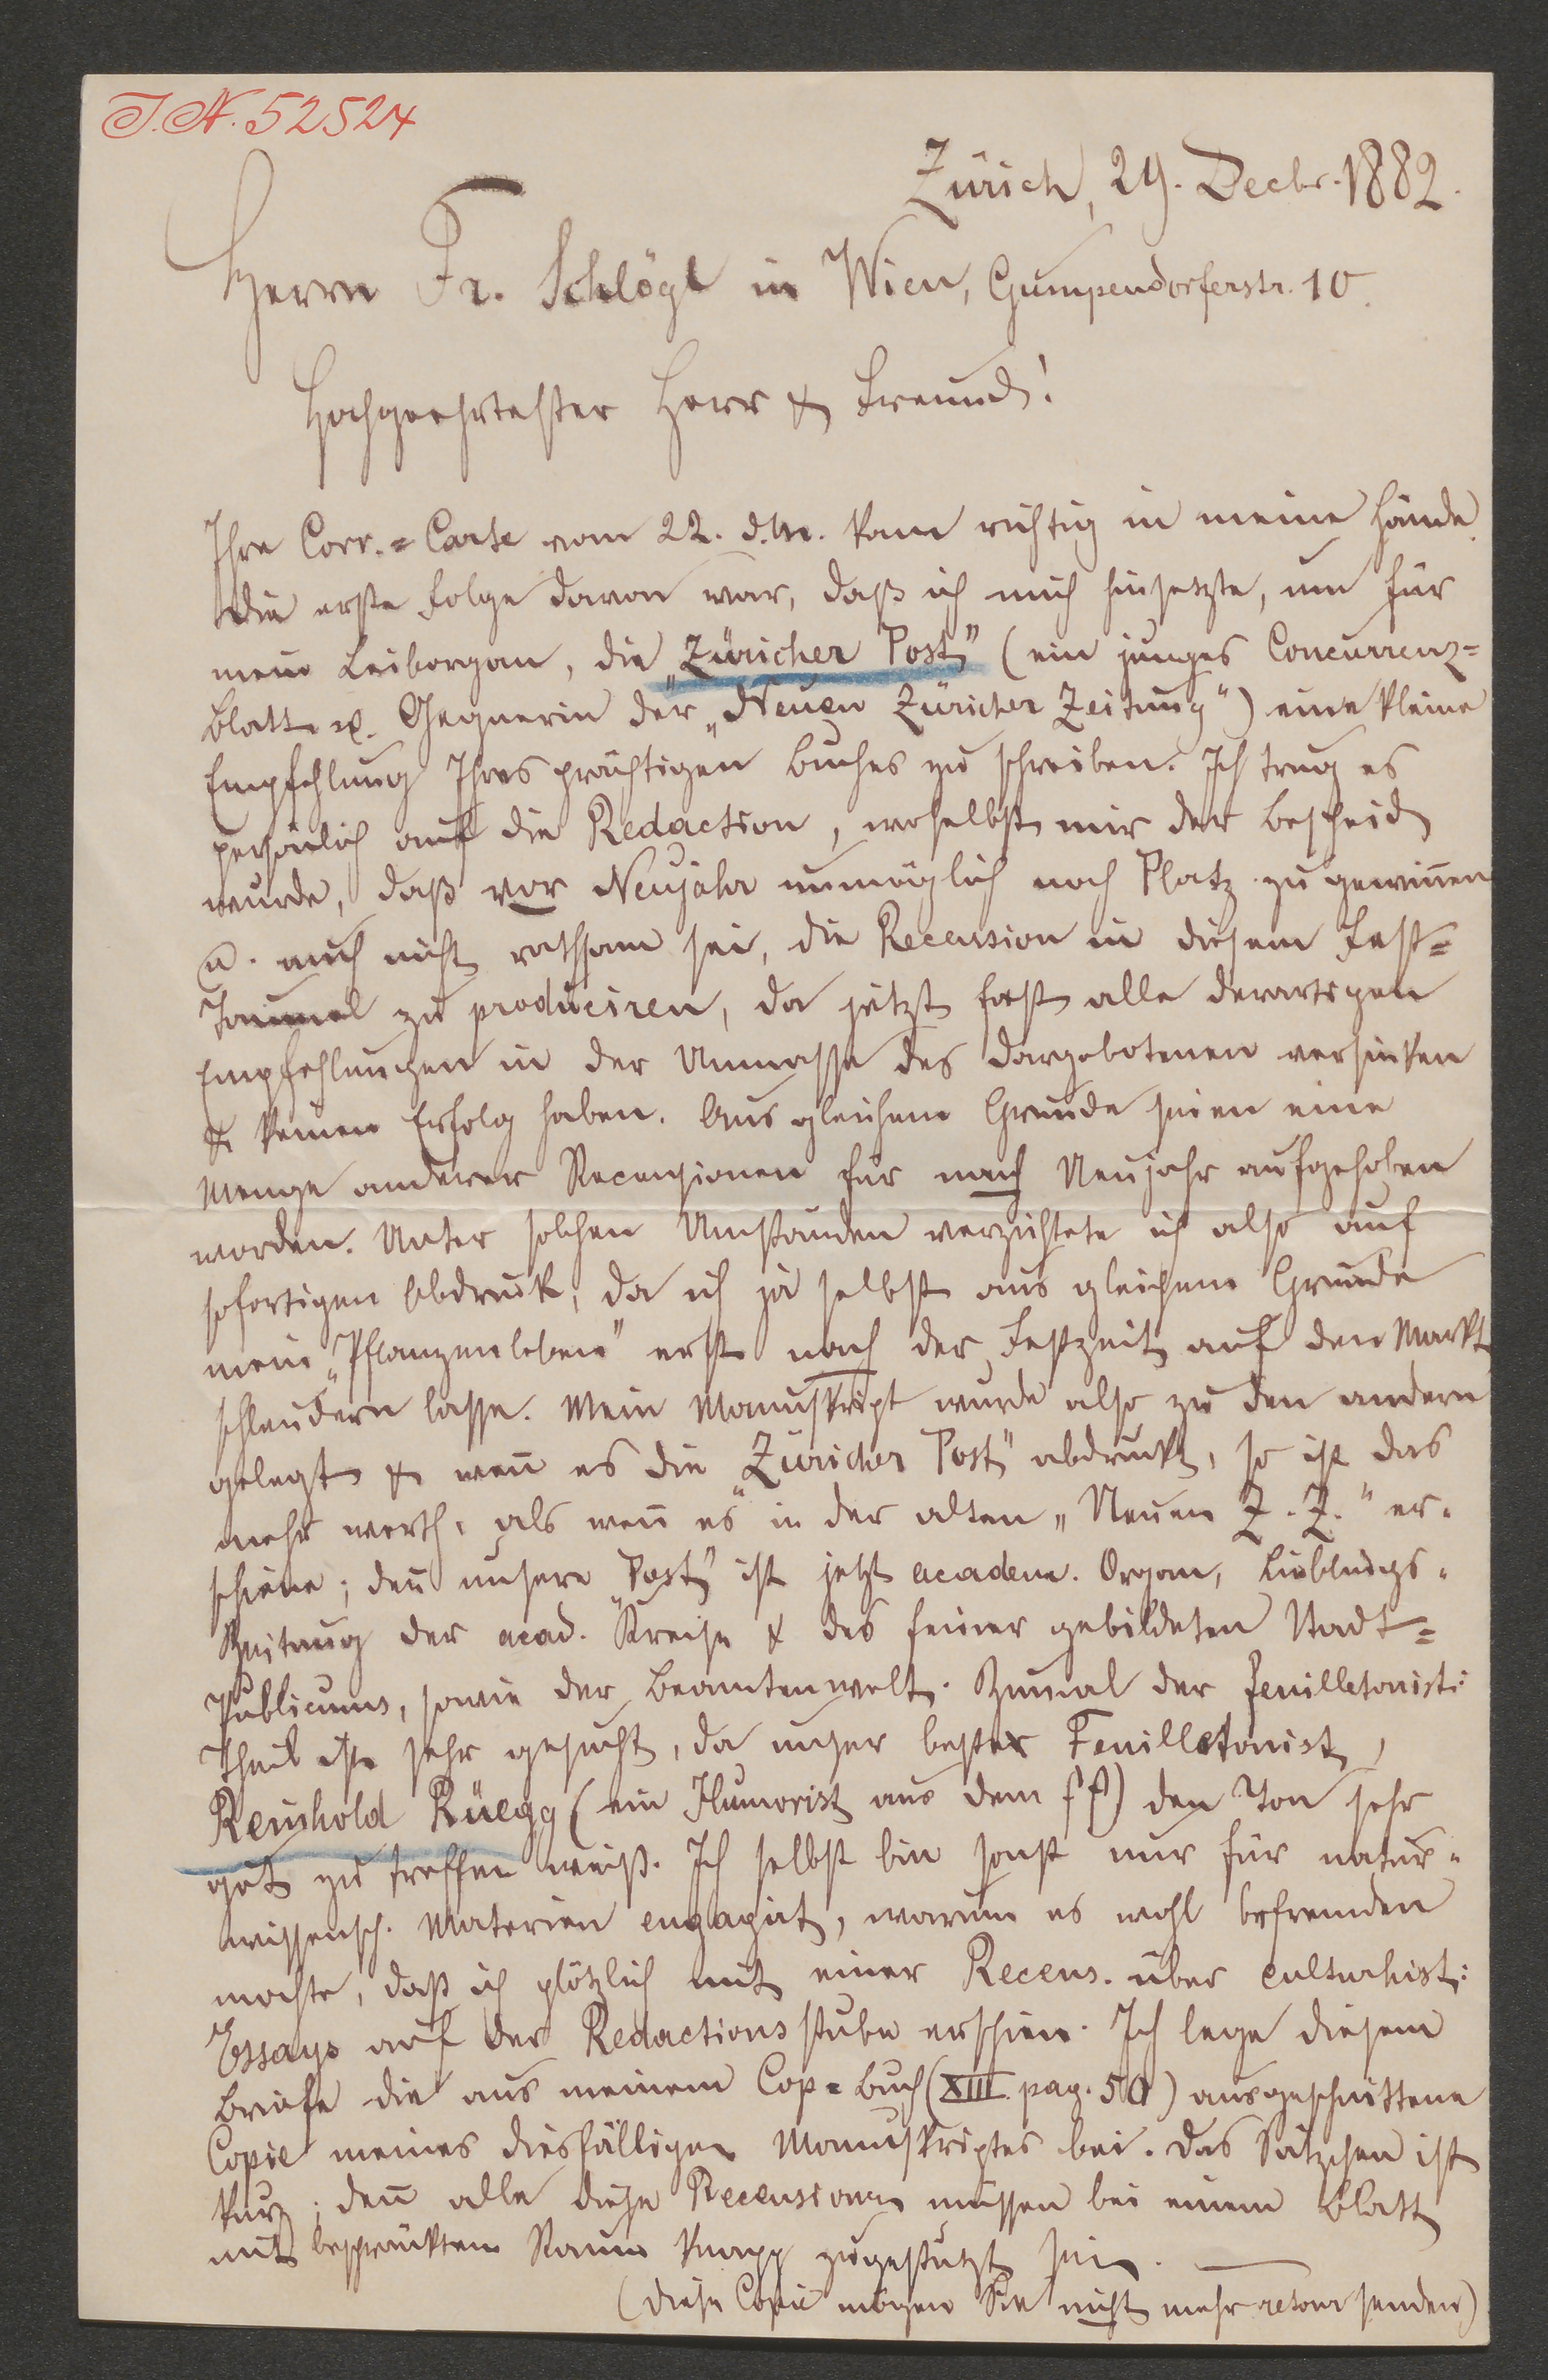 J.N. 52524
Zürich, 29. Decbr. 1882.
Herrn Fr. Schlögl in Wien, Gumpendorferstr. 10.
Hochgeehrtester Herr & Freund!
Ihre Corr.=Carte vom 22. d.M. kam richtig in meine Hände.
Die erste Folge davon war, daß ich mich hinsetzte, um für
mein Leiborgan, die „Züricher Post" (ein junges Concurrenz=
blatt u. Gegnerin der „Neuen Züricher Zeitung") eine kleine
Empfehlung Ihres prächtigen Buches zu schreiben. Ich trug es
persönlich auf die Redaction, woselbst mir der Bescheid
wurde, daß vor Neujahr unmöglich noch Platz zu gewinnen
u. auch nicht rathsam sei, die Recension in diesem Fest=
Taumel zu produciren, da jetzt fast alle derartigen
Empfehlungen in der Unmasse des Dargebotenen versinken
& keinen Erfolg haben. Aus gleichem Grunde seien eine
Menge anderer Recensionen für nach Neujahr aufgehoben
worden. Unter solchen Umständen verzichtete ich also auf
sofortigen Abdruck, da ich ja selbst aus gleichem Grunde
mein „Pflanzenleben" erst nach der Festzeit auf den Markt
schleudern lasse. Mein Manuskript wurde also zu den andern
gelegt & wenn es die „Züricher Post" abdruckt, so ist das
mehr werth, als wenn es in der alten „Neuen Z. Z." er-
schiene; denn unsere „Post" ist jetzt academ. Organ, Lieblings-
Zeitung der acad. Kreise & des feiner gebildeten Stadt=
Publicums, sowie der Beamtenwelt. Zumal der feuilletonist:
Theil ist sehr gesucht, da unser bester Feuilletonist,
Reinhold Rüegg (ein Humorist aus dem ff) den Ton sehr
gut zu treffen weiß. Ich selbst bin sonst nur für natur-
wissensch. Materien engagirt, warum es wohl befremden
mochte, daß ich plötzlich mit einer Recens. über culturhist:
Essays auf der Redactionsstube erschien. Ich lege diesem
Briefe die aus meinem Cop=Buch (XIII pag. 50) ausgeschnittene
Copie meines diesfälligen Manuskriptes bei. Das Sätzchen ist
kurz; denn alle diese Recensionen müssen bei einem Blatt
mit beschränktem Raum knapp zugestutzt sein.
(Diese Copie mögen Sie nicht mehr retour senden)